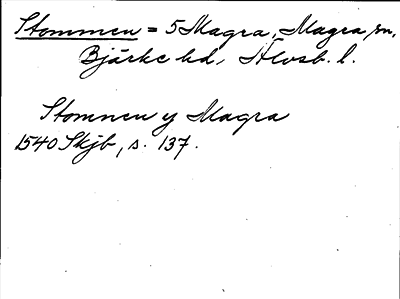 Stommen = 5 Magra, Magra sn,
Bjärke hd, Älvsb. l.
Stomnen y Magra
1540 Skjb, s. 137.